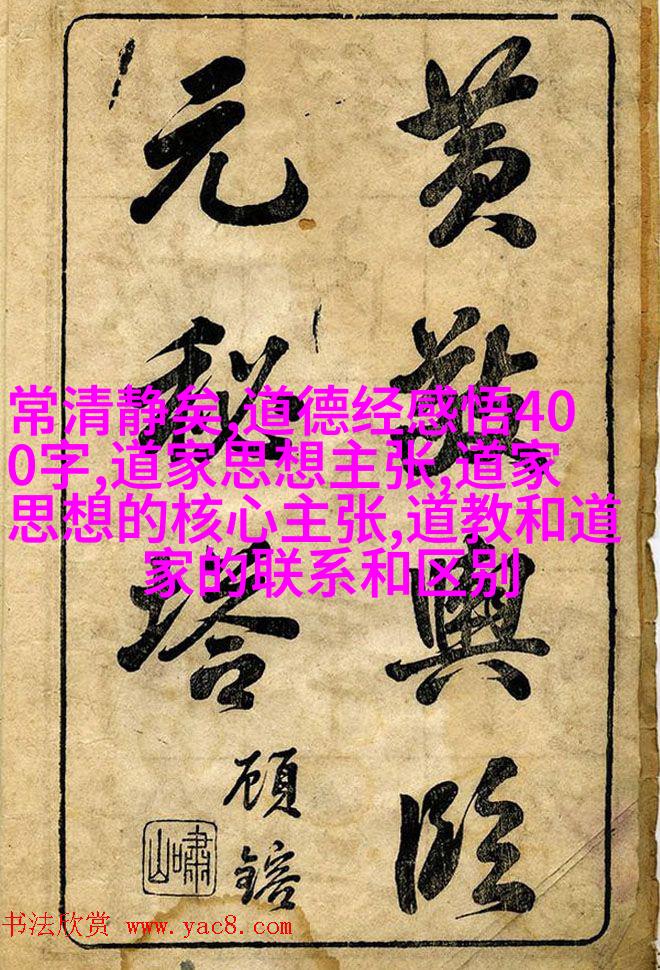 黄敬輿临
元秘塔
顾鎔
嘯山
常清静矣,道德经感悟40
0字,道家思想主张,道家
思想的核心主张,道教和道
家的联系和区别
书法欣赏 www.yac8.com